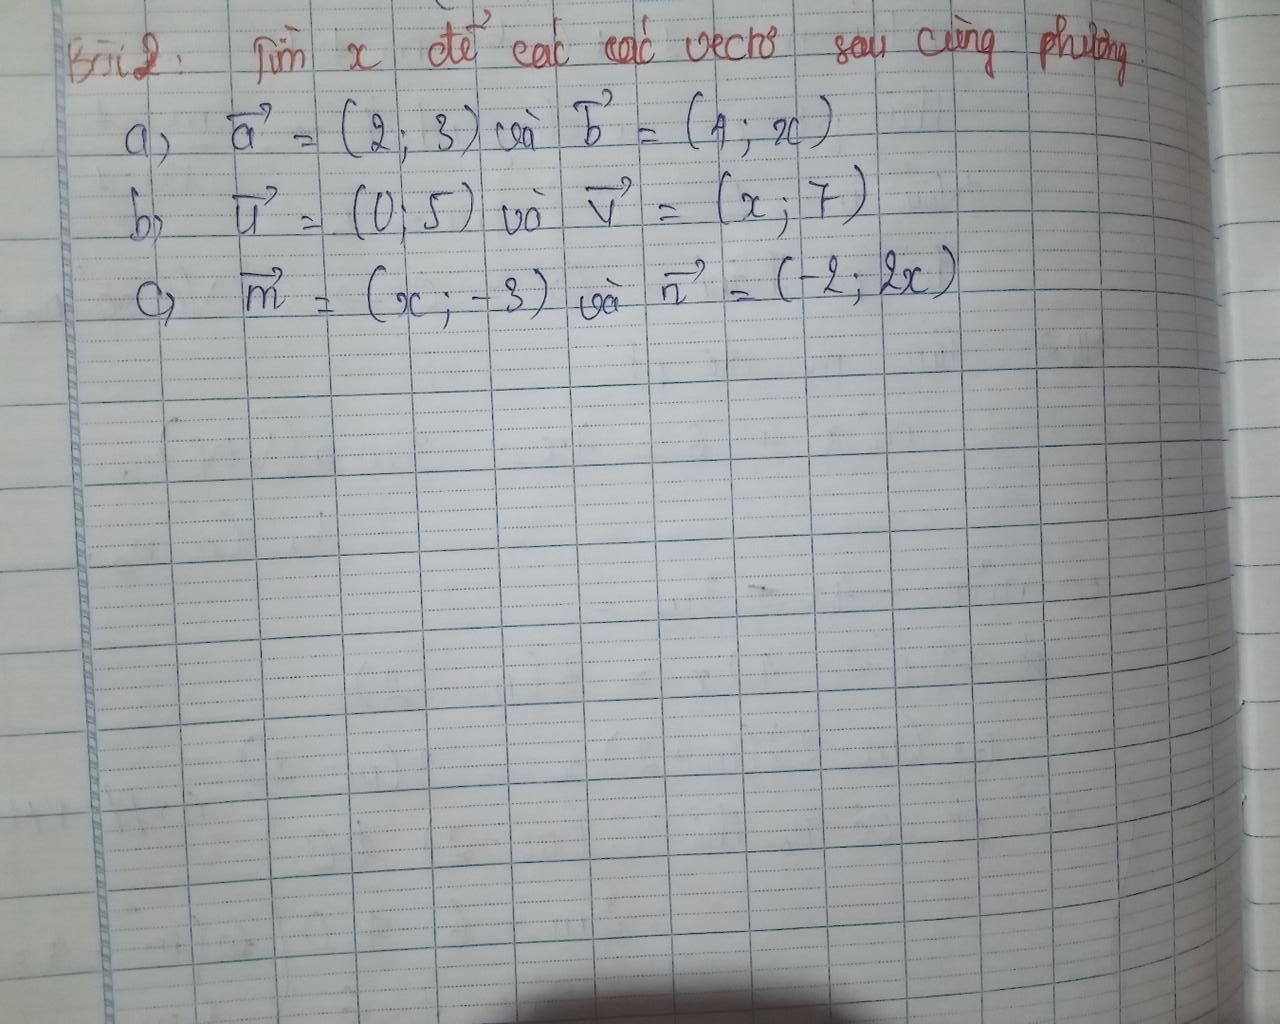 Bài 2: Tìm x để các các vectơ sau cùng phương.
a) a⃗ = (2; 3) và b⃗ = (1; x)
b) u⃗ = (0; 5) và v⃗ = (x; 7)
c) m⃗ = (x; -3) và n⃗ = (-2; 2x)